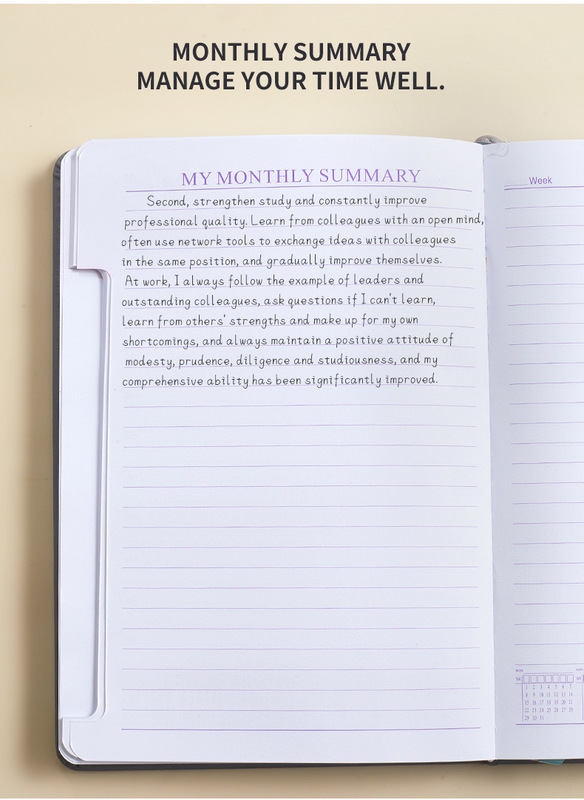 MONTHLY SUMMARY
MANAGE YOUR TIME WELL.
MY MONTHLY SUMMARY
Second, strengthen study and constantly improve
professional quality. Learn from colleagues with an open mind,
often use network tools to exchange ideas with colleagues
in the same position, and gradually improve themselves.
At work, I always follow the example of leaders and
outstanding colleagues, ask questions if I can't learn,
learn from others' strengths and make up for my own
shortcomings, and always maintain a positive attitude of
modesty, prudence, diligence and studiousness, and my
comprehensive ability has been significantly improved.
Week
1 2 3 4 5 6 7
8 9 10 11 12 13 14
15 16 17 18 19 20 21
22 23 24 25 26 27 28
29 30 31